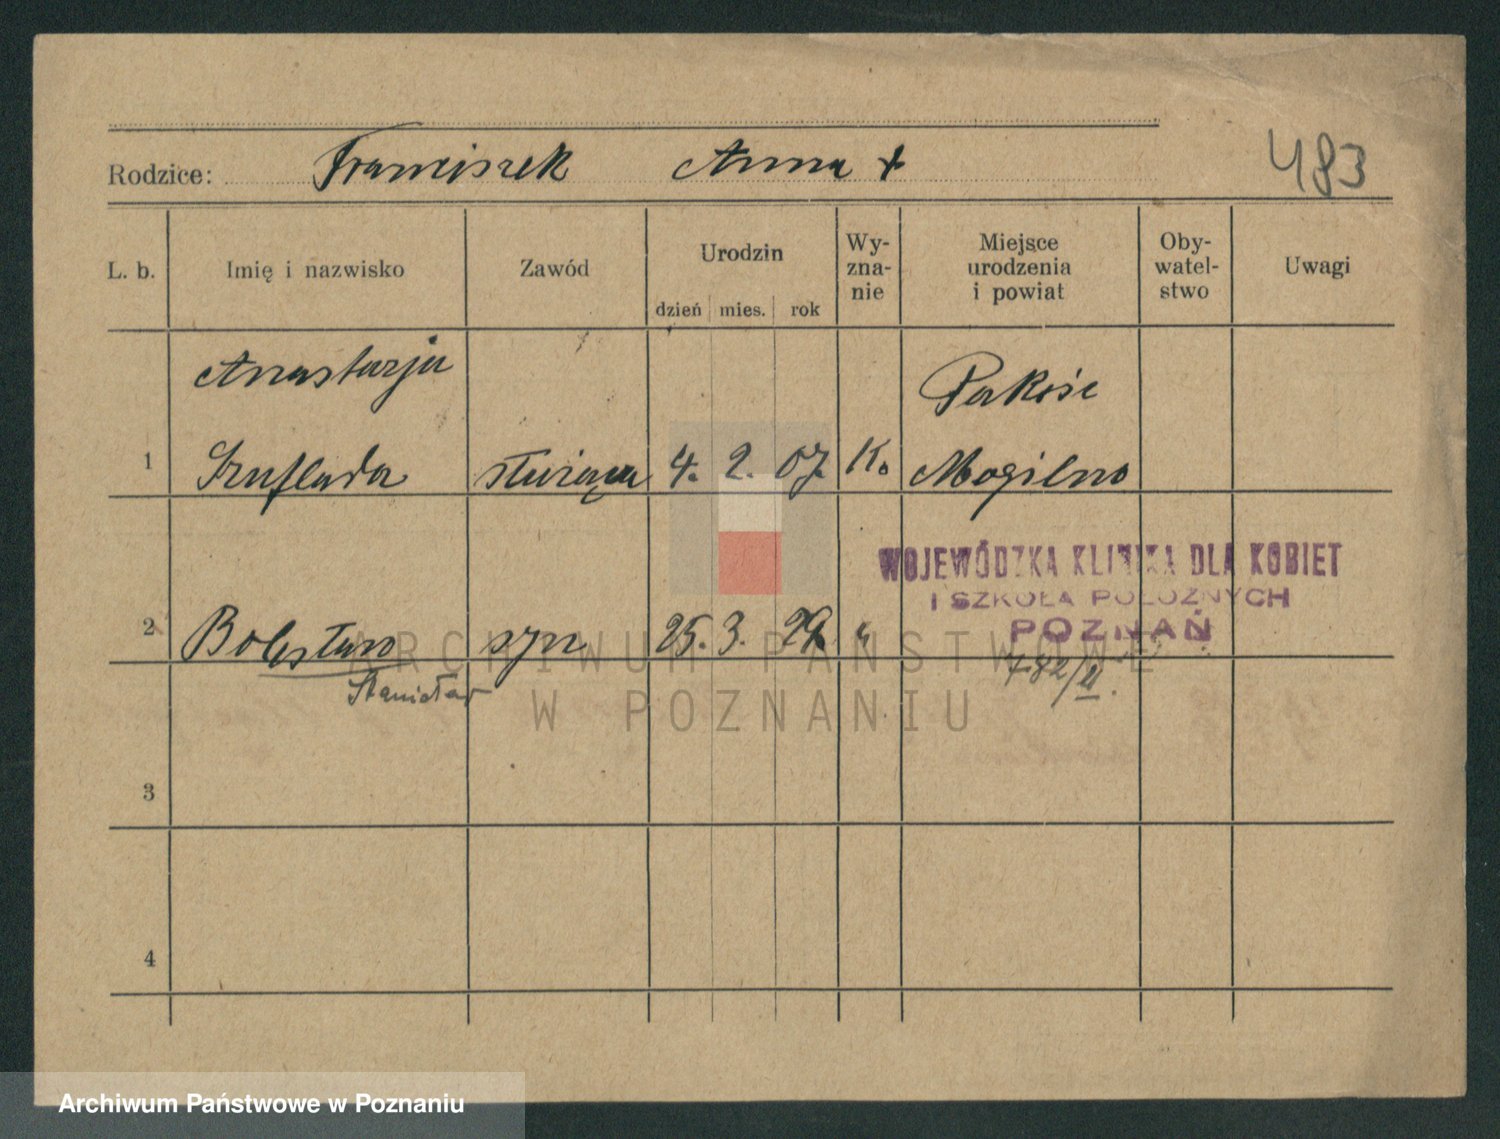 Rodzice: Franciszek Anna +
483
L. b. Imię i nazwisko Zawód Urodzin dzień mies. rok Wy-zna-nie Miejsce urodzenia i powiat Oby-watel-stwo Uwagi
Anastazja Pakość
1 Szuflada służąca 4. 2. 07 K. Mogilno
WOJEWÓDZKA KLINIKA DLA KOBIET
I SZKOŁA POŁOŻNYCH
2 Bolesław syn 25. 3. 29 "
POZNAŃ
Stanisław 782/II.
3
4
ARCHIWUM PAŃSTWOWE
W POZNANIU
Archiwum Państwowe w Poznaniu